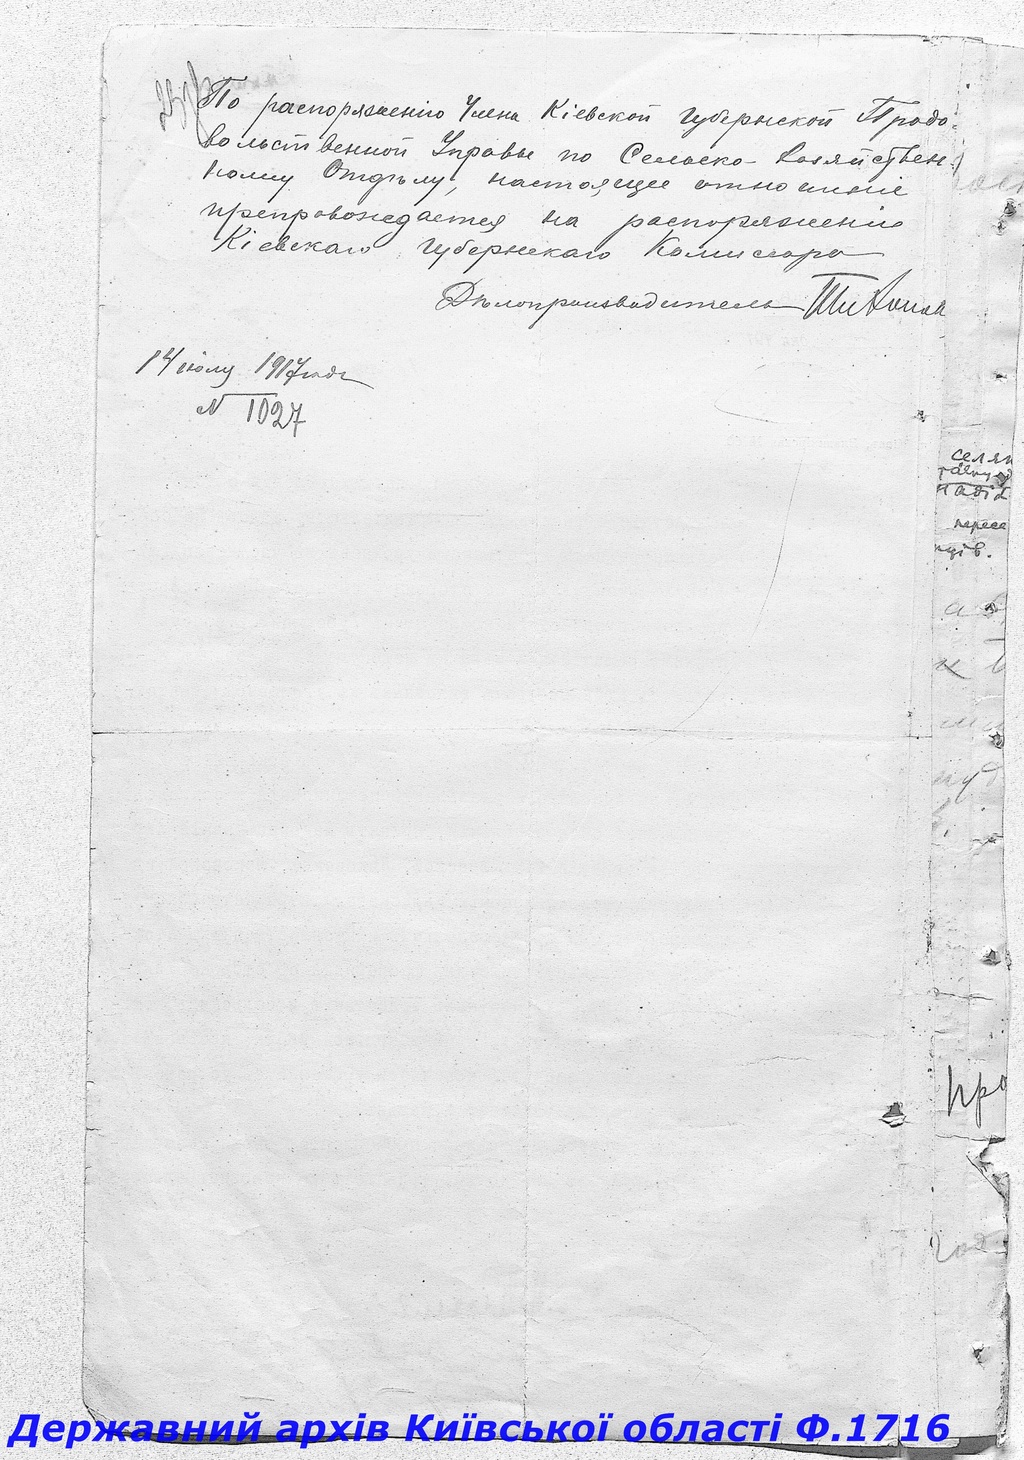 По распоряженію Члена Кіевской Губернской Продо-
вольственной Управы по Сельско-хозяйствен-
ному Отдѣлу, настоящее отношеніе
препровождается на распоряженіе
Кіевскаго Губернскаго Комиссара
Дѣлопроизводитель
14 іюлу 1917 года
N 1027
селян
наділ
пересе
нців.
про
Державний архів Київської області Ф.1716